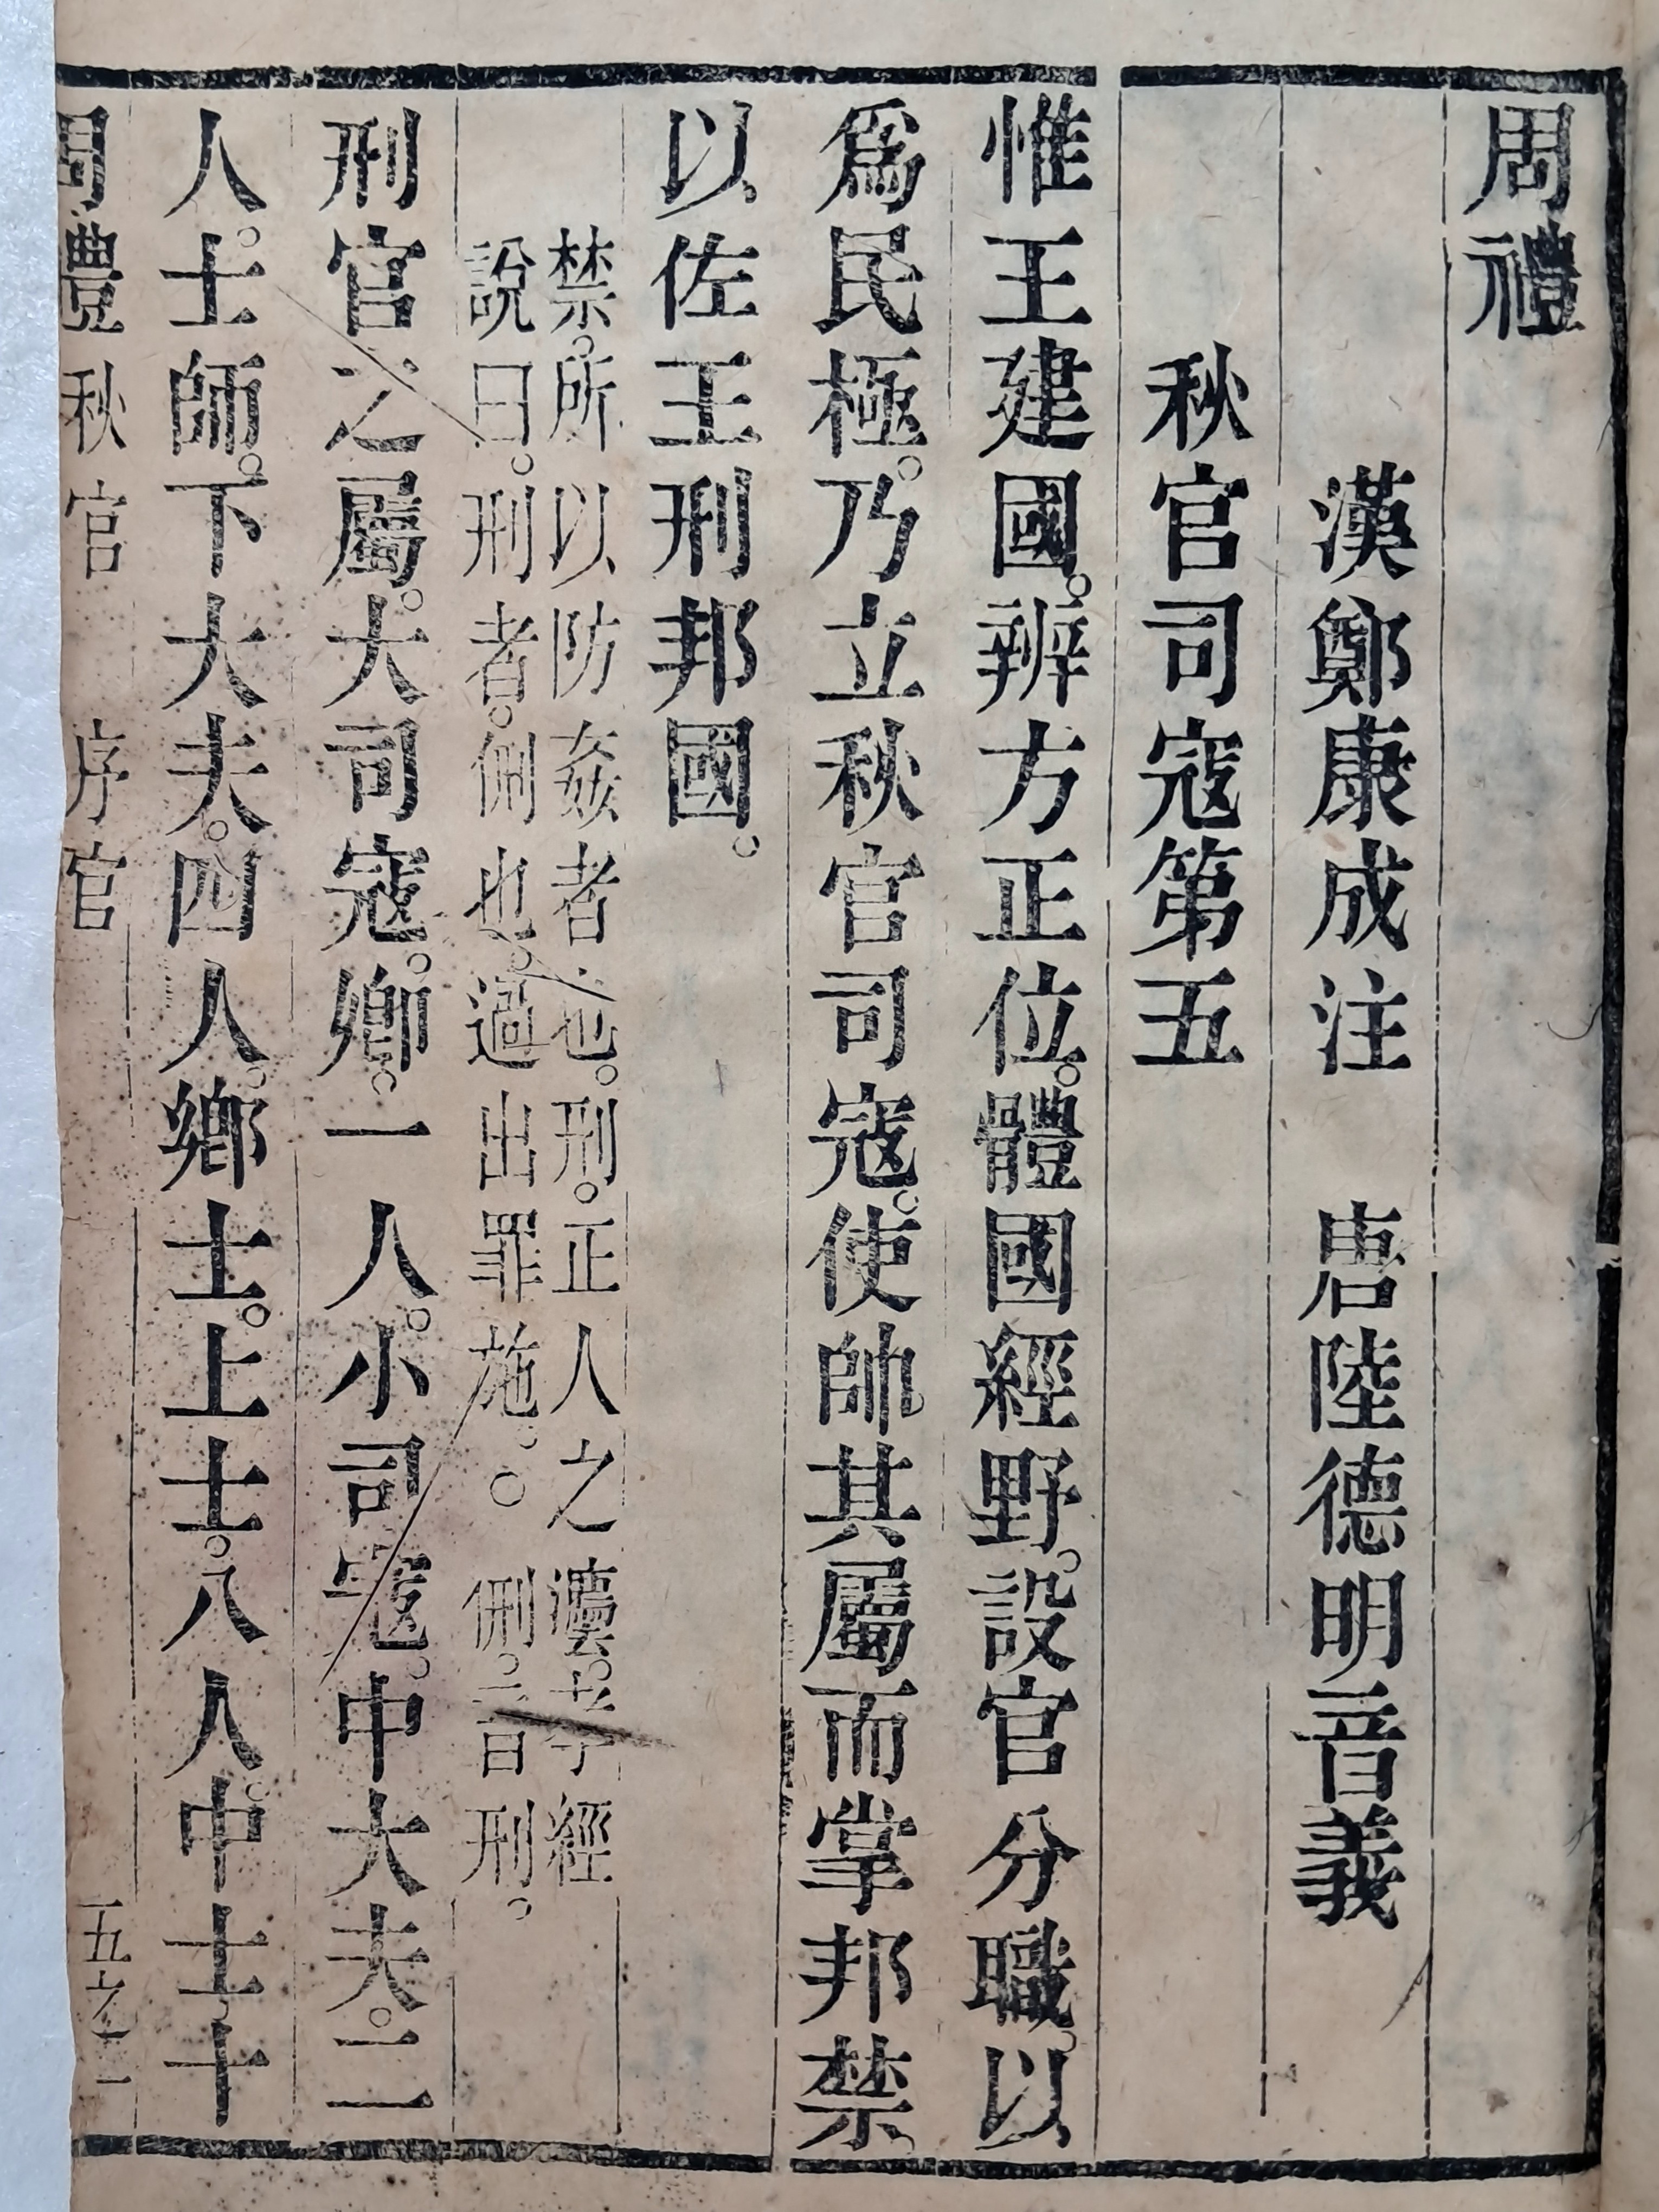 周禮
漢鄭康成注　唐陸德明音義
秋官司寇第五
惟王建國。辨方正位。體國經野。設官分職。以
爲民極。乃立秋官司寇。使帥其屬而掌邦禁。
以佐王刑邦國。
禁。所以防姦者也。刑。正人之灋。孝經
說曰。刑者。侀也。過出罪施。○侀。音刑。
刑官之屬。大司寇。卿。一人。小司寇。中大夫。二
人。士師。下大夫。四人。鄉士。上士。八人。中士十
周禮　秋官　序官　五之一